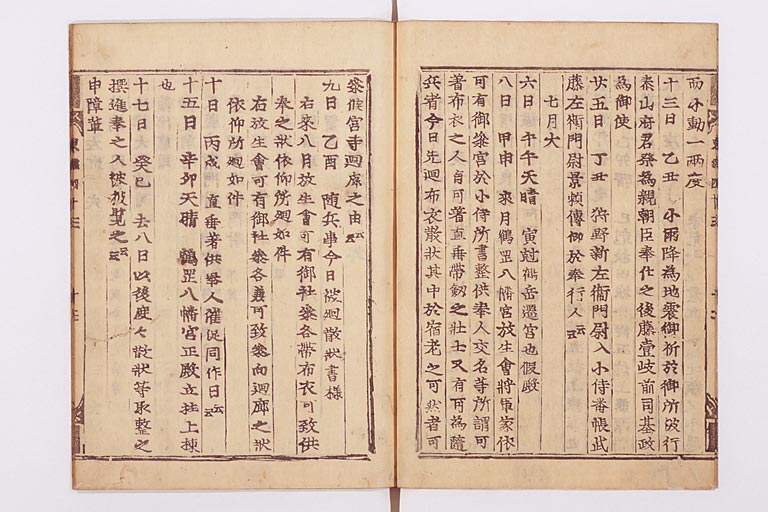 両小動一兩度
十三日 乙丑 小雨降為地震御祈於御所被行
泰山府君祭為親朝臣奉仕之後藤壹岐前司基政
為御使
廿五日 丁丑 狩野新左衛門尉入小侍番帳武
藤左衛門尉景頼傳仰於奉行人云云
七月大
六日 戊午天晴 寅尅鶴岳還宮也假殿
八日 甲申 來月鶴罡八幡宮放生會將軍家依
可有御參宮於小侍所書整供奉人交名等所謂可
著布衣之人自可著直垂帶釼之壮士又有可為隨
兵者今日先廻布衣散状其中於宿老之可然者可
參候宮寺廻廊之由云云
九日 乙酉 随兵事今日被廻散状書様
右來八月放生會可有御社參各帶布衣可致供
奉之状依仰所廻如件
右放生會可有御社參各着可致參向廻廊之状
依仰所廻如件
十日 丙戌 直垂著供奉人催促同作日云云
十五日 辛卯天晴 鶴罡八幡宮正殿立柱上棟
也
十七日 癸巳 去八日以後度々散状等取整之
撰進奉之人被披覧之云云
申障輩
東鑑四十三